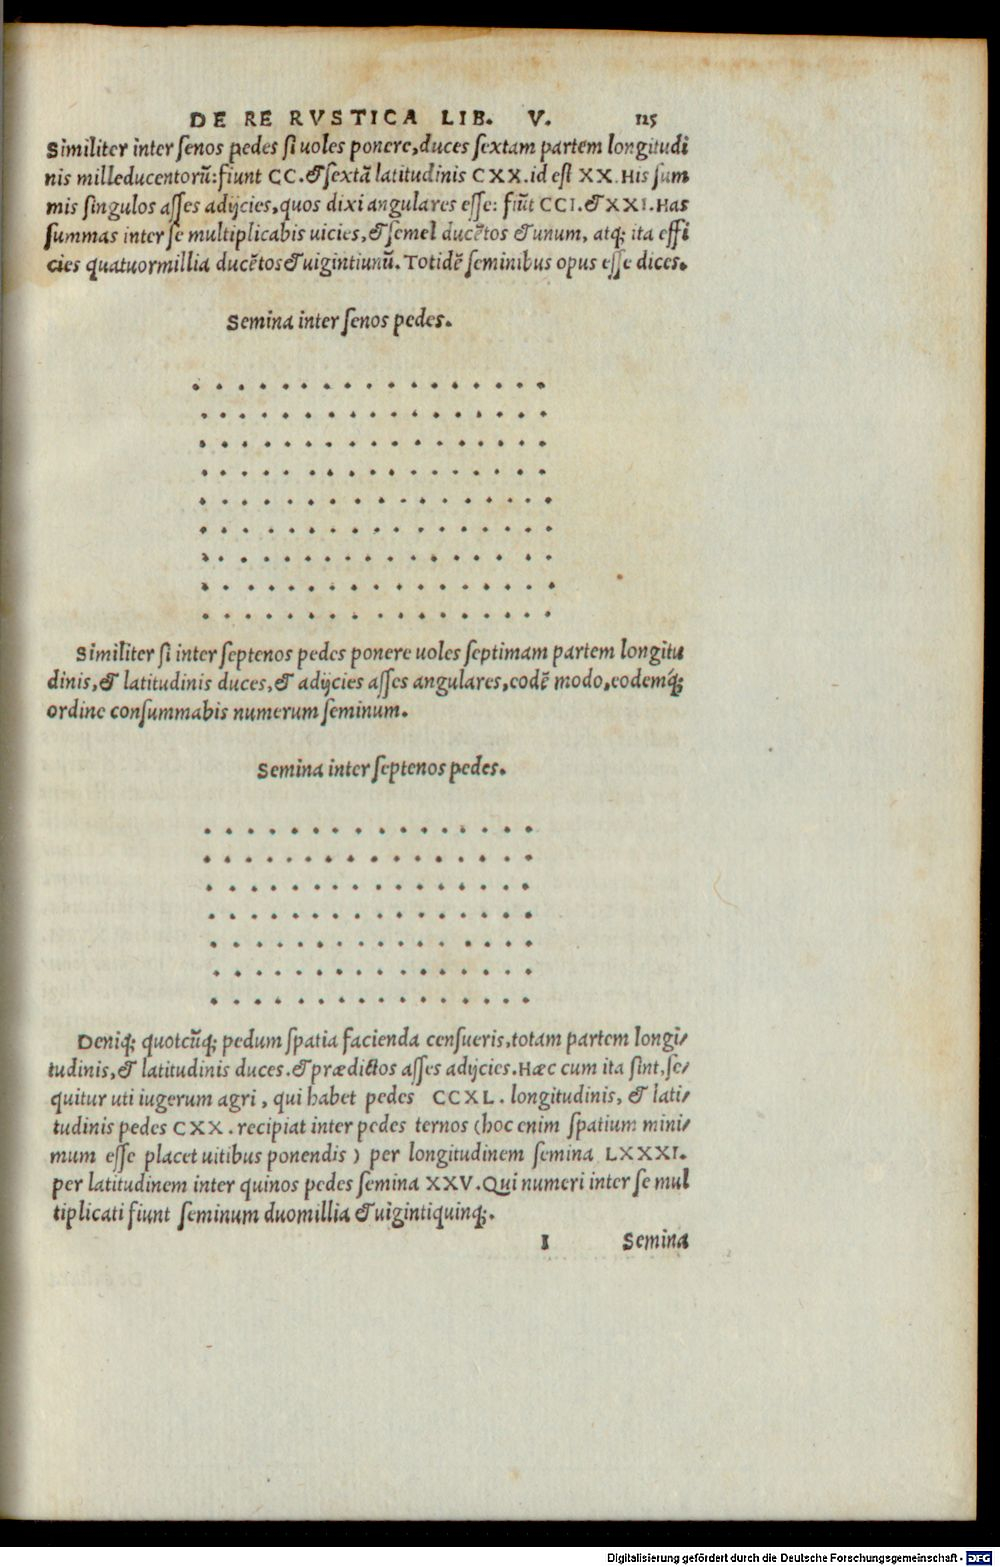 DE RE RVSTICA LIB. V. 125
Similiter inter ſenos pedes ſi uoles ponere, duces ſextam partem longitudi
nis milleducentorũ: fiunt CC. & ſextã latitudinis CXX. id eſt XX. His ſum
mis ſingulos aſſes adijcies, quos dixi angulares eſſe: fiũt CCI. & XXI. Has
ſummas inter ſe multiplicabis uicies, & ſemel ducẽtos & unum, atq; ita effi
cies quatuormillia ducẽtos & uigintiunũ. Totidẽ ſeminibus opus eſſe dices.
Semina inter ſenos pedes.
Similiter ſi inter ſeptenos pedes ponere uoles ſeptimam partem longitu
dinis, & latitudinis duces, & adijcies aſſes angulares, eodẽ modo, eodemq́;
ordine conſummabis numerum ſeminum.
Semina inter ſeptenos pedes.
Deniq; quotcũq; pedum ſpatia facienda cenſueris, totam partem longi/
tudinis, & latitudinis duces. & prædictos aſſes adijcies. Hæc cum ita ſint, ſe/
quitur uti iugerum agri, qui habet pedes CCXL. longitudinis, & lati/
tudinis pedes CXX. recipiat inter pedes ternos (hoc enim ſpatium mini/
mum eſſe placet uitibus ponendis) per longitudinem ſemina LXXXI.
per latitudinem inter quinos pedes ſemina XXV. Qui numeri inter ſe mul
tiplicati fiunt ſeminum duomillia & uigintiquinq;.
I Semina
Digitalisierung gefördert durch die Deutsche Forschungsgemeinschaft - DFG